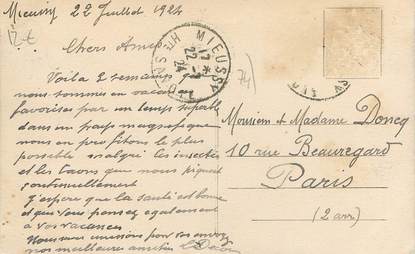 Mieussy 22 Juillet 1924
Chers Amis
Voila 2 semaines que
nous sommes en vacances
favorisés par un temps superbe
dans un pays magnifique
nous en profitons le plus
possible malgré les insectes
et les taons que nous piquent
continuellement
J'espère que la santé est bonne
et que vous pensez également
à vos vacances
Nous nous unissons pour vous envoyer
nos meilleures amitiés
MIEUSSY
17
22 - 7
24
Hte SAVOIE
74
Monsieur et Madame Doncq
10 rue Beauregard
Paris
(2 arr)